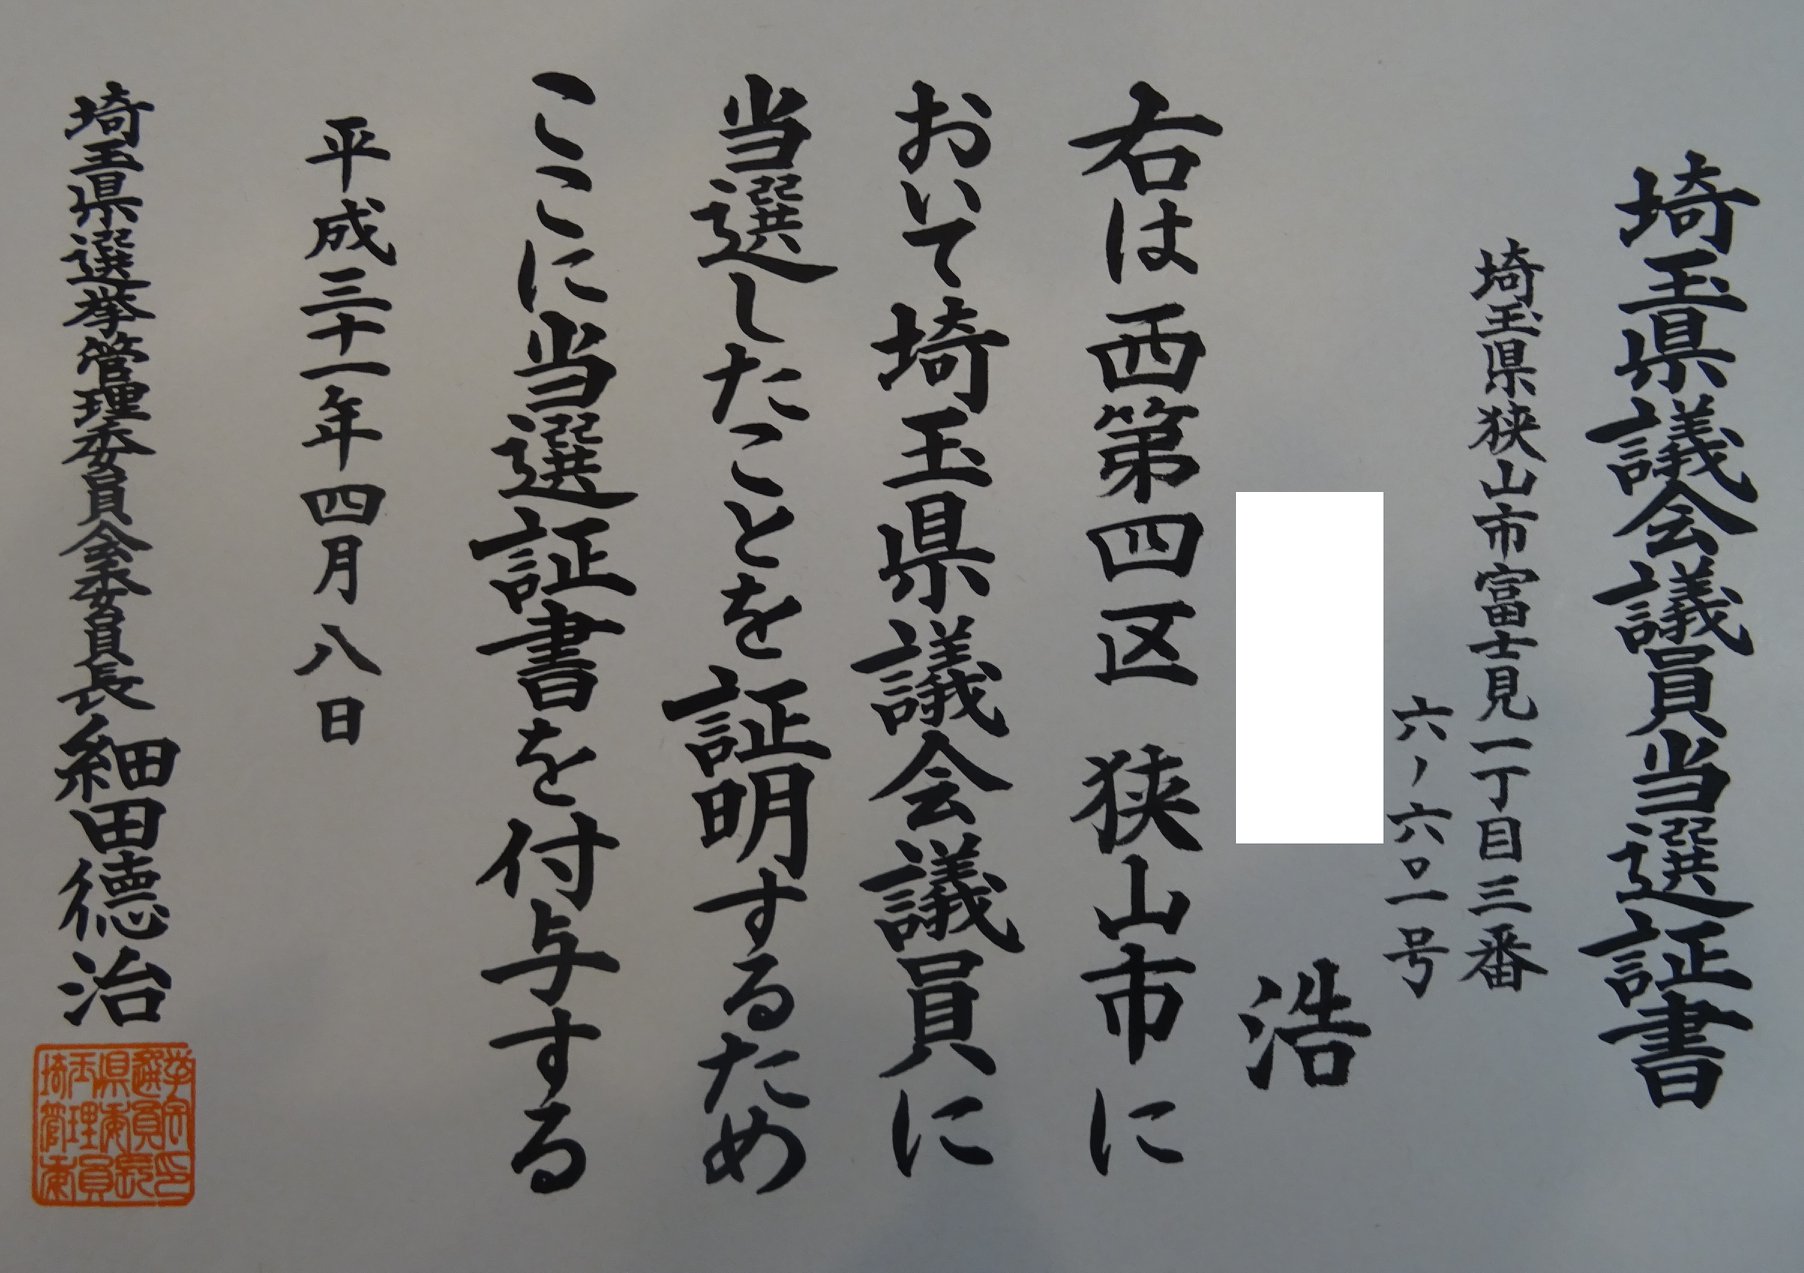 埼玉県議会議員当選証書
埼玉県狭山市富士見一丁目三番
六ノ六〇一号
浩
右は西第四区 狭山市に
おいて埼玉県議会議員に
当選したことを証明するため
ここに当選証書を付与する
平成三十一年四月八日
埼玉県選挙管理委員会委員長 細田徳治